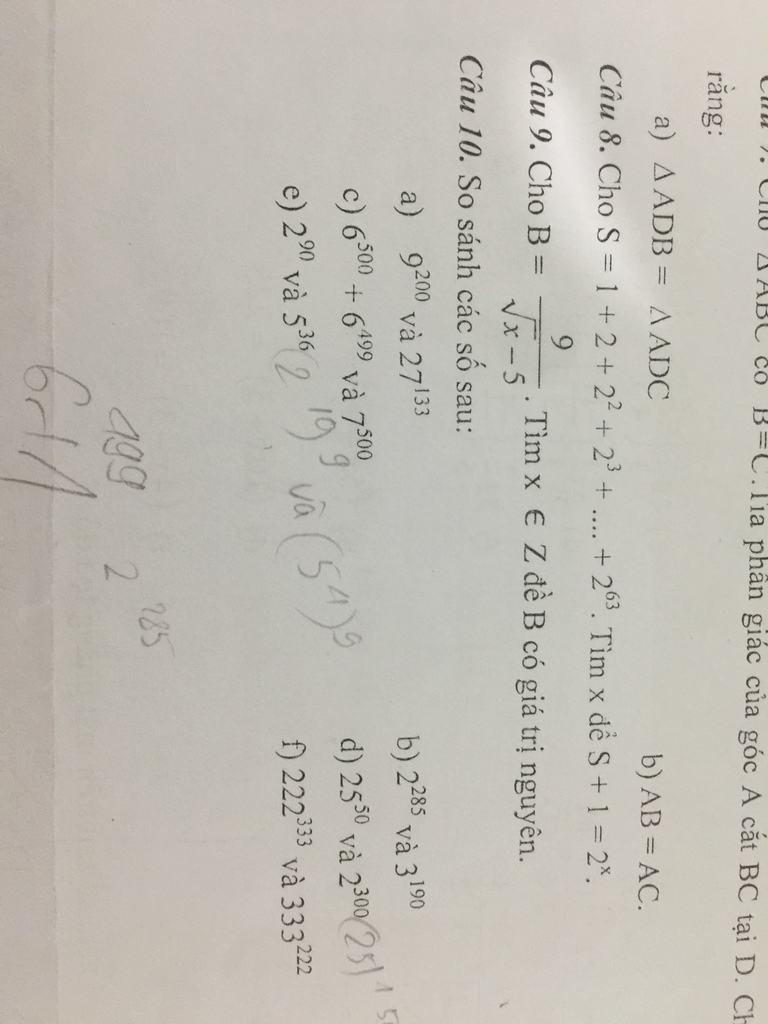 Cho Δ ABC có B=C.Tia phân giác của góc A cắt BC tại D. Ch
rằng:
a) Δ ADB = Δ ADC b) AB = AC.
Câu 8. Cho S = 1 + 2 + 2² + 2³ + .... + 2⁶³. Tìm x để S + 1 = 2ˣ.
Câu 9. Cho B = 9/(√x − 5). Tìm x ∈ Z đề B có giá trị nguyên.
Câu 10. So sánh các số sau:
a) 9²⁰⁰ và 27¹³³ b) 2²⁸⁵ và 3¹⁹⁰
c) 6⁵⁰⁰ + 6⁴⁹⁹ và 7⁵⁰⁰ d) 25⁵⁰ và 2³⁰⁰
e) 2⁹⁰ và 5³⁶ f) 222³³³ và 333²²²
(2¹⁹)⁹ và (5⁴)⁹
499 2²⁸⁵